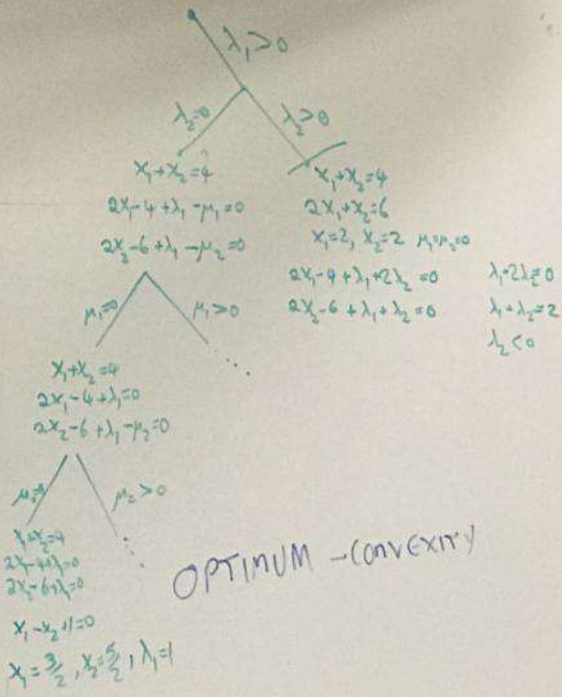 λ₁>0
λ₂=0
λ₂>0
x₁+x₂=4
2x₁-4+λ₁-μ₁=0
2x₂-6+λ₁-μ₂=0
x₁+x₂=4
2x₁+x₂=6
x₁=2, x₂=2 μ₁=μ₂=0
2x₁-4+λ₁+2λ₂=0
2x₂-6+λ₁+λ₂=0
λ₁+2λ₂=0
λ₁+λ₂=2
λ₂<0
μ₁=0
μ₁>0
...
x₁+x₂=4
2x₁-4+λ₁=0
2x₂-6+λ₁-μ₂=0
μ₂=0
μ₂>0
...
x₁+x₂=4
2x₁-4+λ₁=0
2x₂-6+λ₁=0
x₁-x₂+1=0
x₁=3/2, x₂=5/2, λ₁=1
OPTIMUM - CONVEXITY